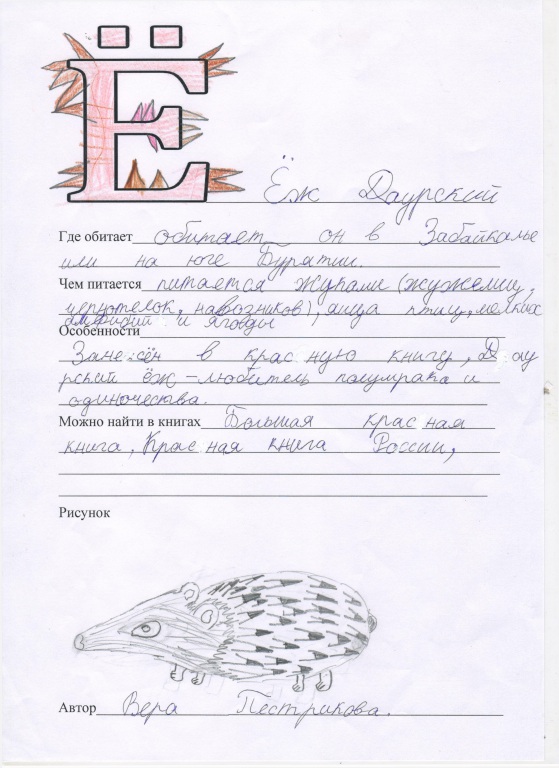 Ё
Ёж Даурский
Где обитает обитает он в Забайкалье
или на юге Бурятии.
Чем питается питается жуками (жужелиц,
чернотелок, навозников), яйца птиц, мелких
амфибий и ягоды
Особенности
Занесён в красную книгу, Дау
рский ёж - любитель полумрака и
одиночества.
Можно найти в книгах Большая красная
книга, Красная книга России,
Рисунок
Автор Вера Пестрикова.